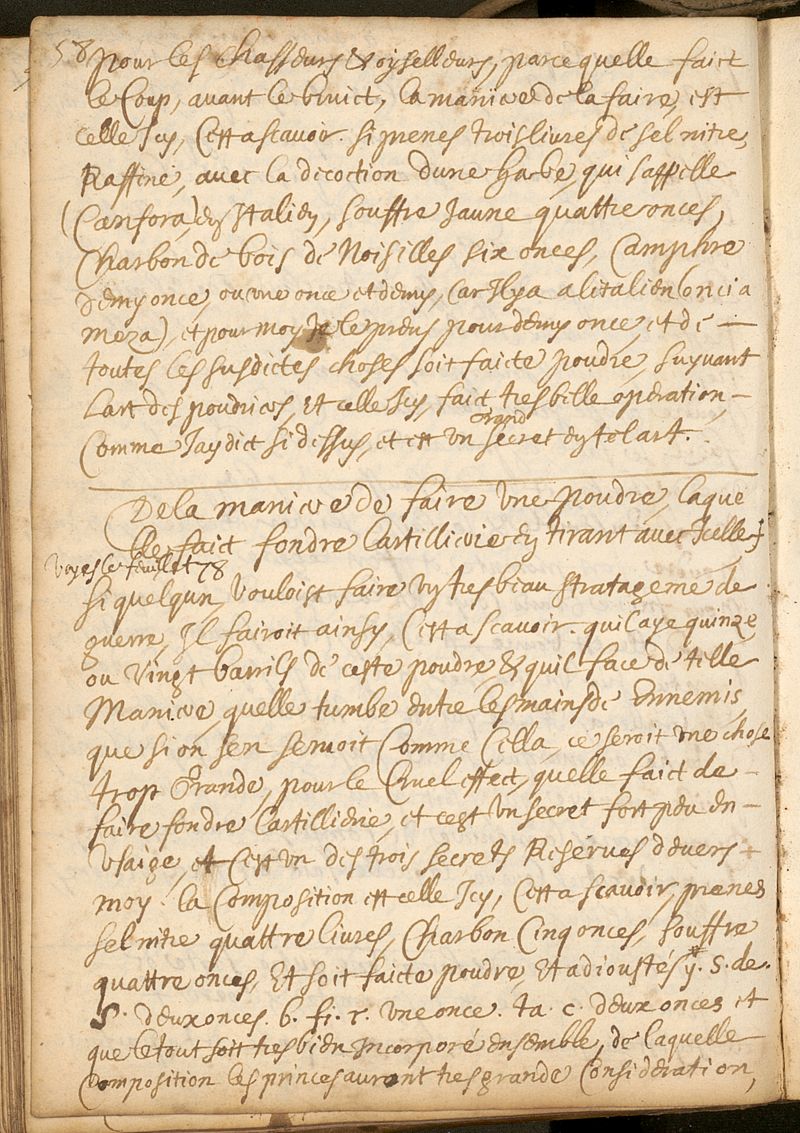 58 pour les chasseurs & oyselleurs, parce quelle faict
le Coup, auant le bruict, la maniere de la faire, est
celle Icy, Cest a scauoir. si prenes trois liures de sel nitre,
Raffine, auec la decoction dune harbe, qui sappelle
(Canfora) en Italien, souffre Jaune quattre onces,
Charbon de bois de Noisilles six onces, Camphre
demy once, ou vne once et demy, Car Ilya alitalien (oncia
meza), et pour moy Je le prens pour demy once, et de —
toutes les susdictes choses soit faicte poudre, suyuant
Lart des poudriers, Et celle Icy, faict tresbelle operation —
Comme Jay dict si dessus, et est vn grand secret en tel art.
De la maniere de faire vne poudre, laque
lle faict fondre lartillierie en tirant auec Icelle
voyes le feuillet 78
si quelqun, vouloist faire vn tresbeau stratageme de
guerre, Il fairoit ainsy, Cest a scauoir. quil aye quinze
ou vingt barrils de ceste poudre & quil face de telle
Maniere, quelle tumbe entre les mains de Ennemis,
que si on sen seruoit Comme Cella, ce seroit vne chose
trop Grande, pour le Cruel effect, quelle faict de —
faire fondre lartillierie, et cest vn secret fort peu en —
vsaige, et Cest vn des trois secrets Reserues deuers
moy. la Composition est celle Icy, Cest a scauoir, prenes
sel nitre quattre liures, Charbon Cinq onces, souffre
quattre onces, Et soit faicte poudre, Et adioustés y. s. de.
S. deux onces. b. fi. r. vne once. ta. c. deux onces et
que le tout soit tres bien Incorporé ensemble, de laquelle
Composition les princes auront tresgrande Consideration,